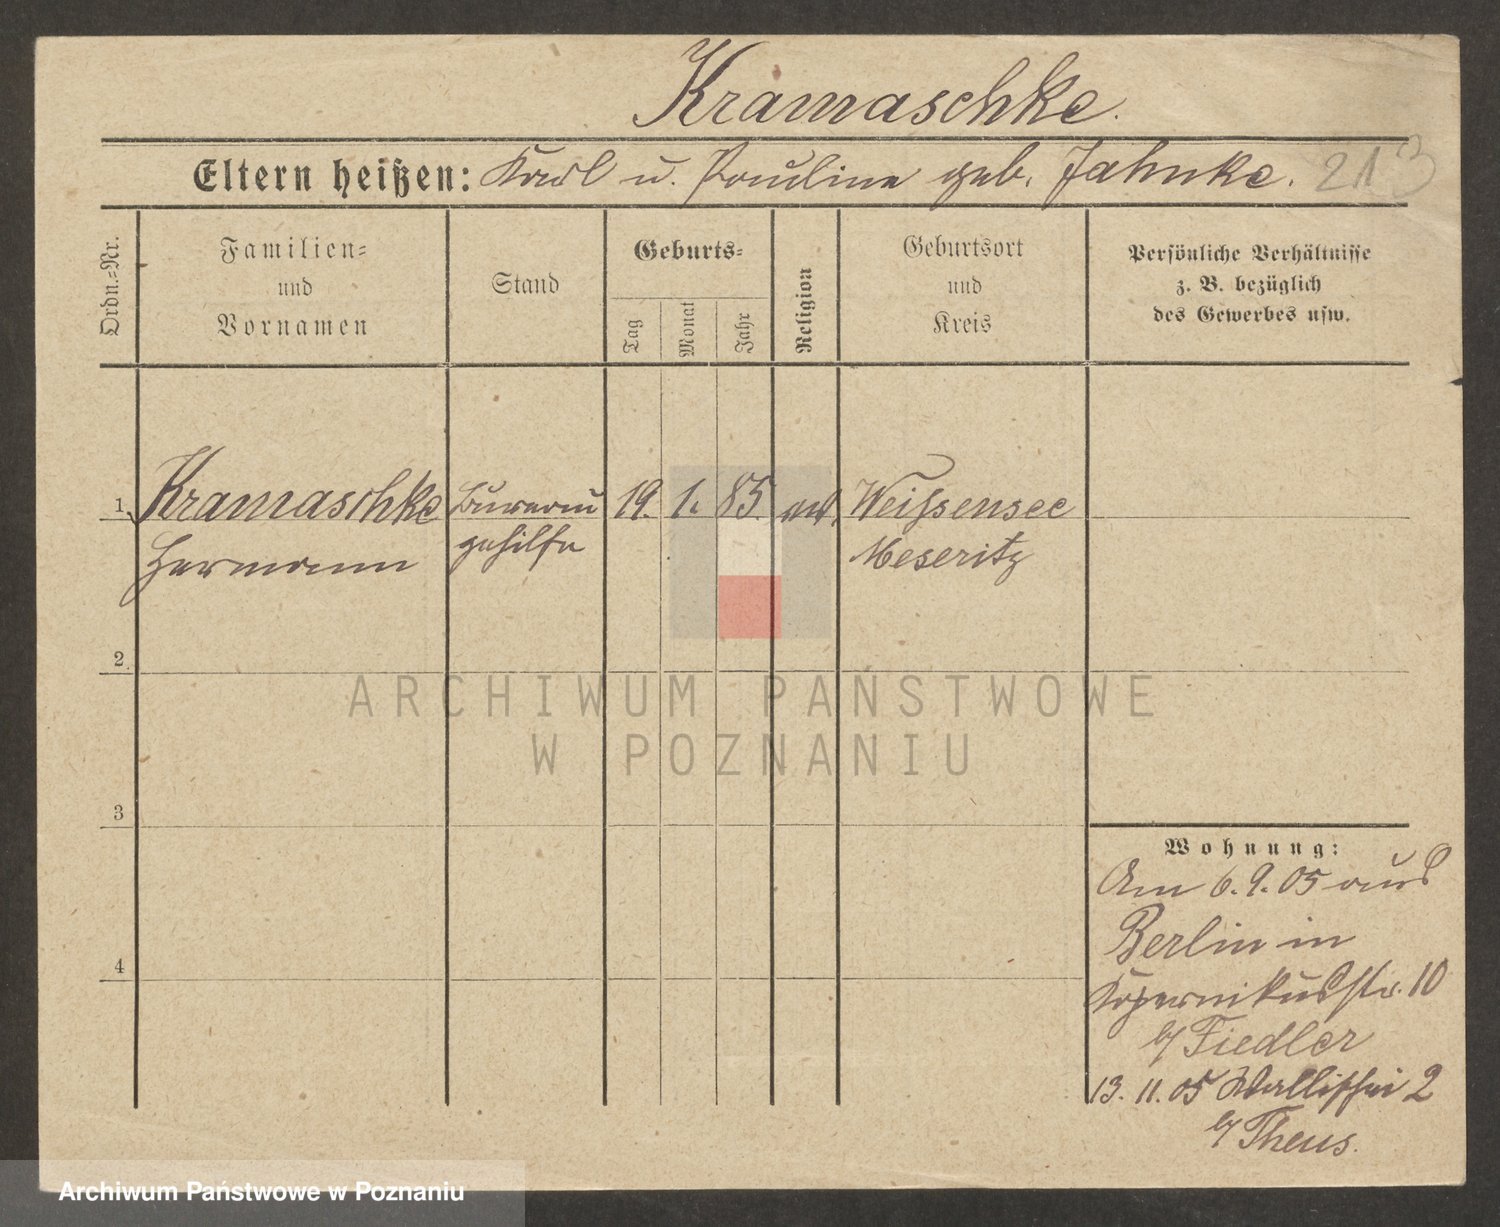 Kramaschke.
Eltern heißen: Karl u. Pauline geb. Jahnke. 213
Ordn.=Nr.
Familien=
und
Vornamen
Stand
Geburts=
Tag
Monat
Jahr
Religion
Geburtsort
und
Kreis
Persönliche Verhältnisse
z. B. bezüglich
des Gewerbes usw.
1. Kramaschke Bureau 19. 1. 85. Weißensee
Hermann gehilfe Meseritz
2
3
4
Wohnung:
Am 6.9.05 aus
Berlin in
Kopernikusstr. 10
b/ Fiedler
13. 11. 05 Wallischei 2
b/ Theus.
ARCHIWUM PAŃSTWOWE
W POZNANIU
Archiwum Państwowe w Poznaniu